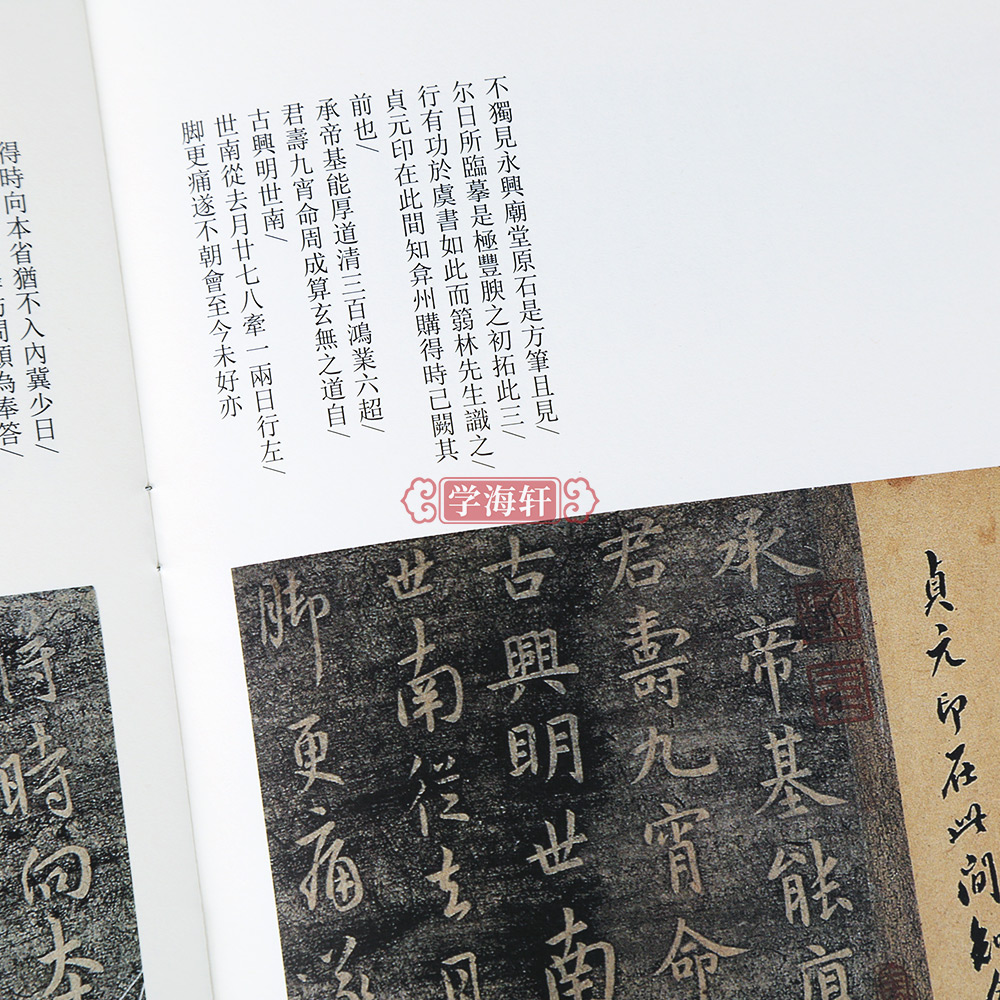 不獨見永興廟堂原石是方筆且見/
尔日所臨摹是極豐腴之初拓此三/
行有功於虞書如此而篛林先生識之/
貞元印在此間知弇州購得時已闕其
前也/
承帝基能厚道清三百鴻業六超/
君壽九宵命周成算玄無之道自/
古興明世南/
世南從去月廿七八牽一兩日行左/
脚更痛遂不朝會至今未好亦
得時向本省猶不入內冀少日/
問願為奉答/
学海轩
貞元印在此間知
承帝基能厚
君壽九宵命
古興明世南
世南從去月
脚更痛遂
得時向本